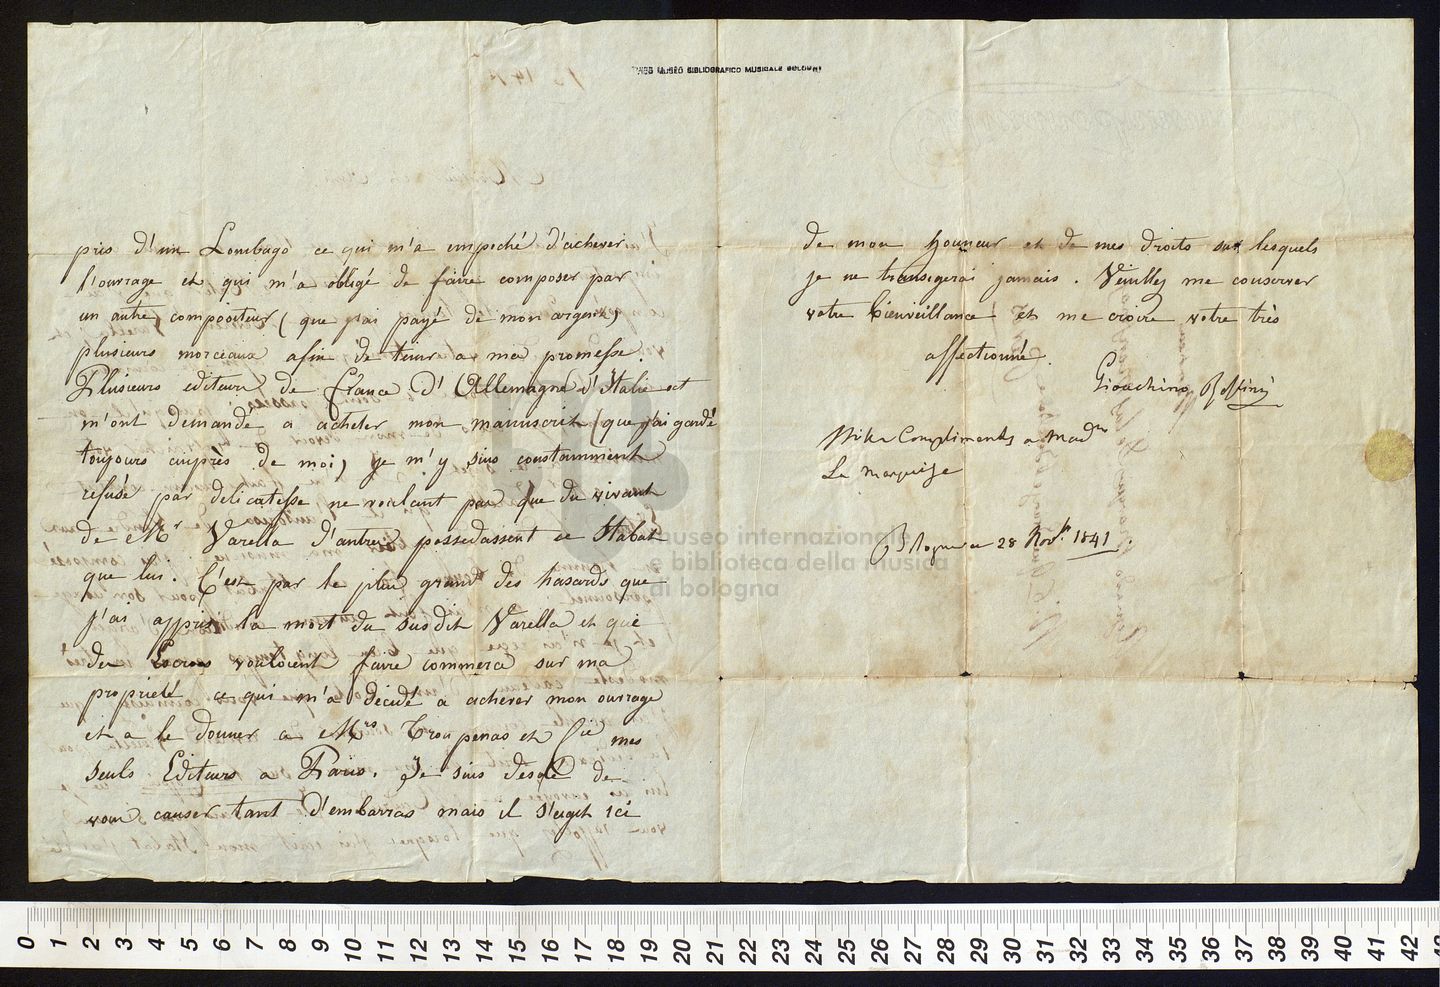 CIVICO MUSEO BIBLIOGRAFICO MUSICALE BOLOGNA
pris d'un Lombago ce qui m'a empeché d'achever
l'ouvrage et qui m'a obligé de faire composer par
un autre compositeur (que j'ai payé de mon argent)
plusieurs morceaux afin de tenir a ma promesse.
Plusieurs editeurs de France d'Allemagne d'Italie ect
m'ont demandé a acheter mon manuscrit (que j'ai gardé
toujours auprès de moi) je m'y suis constamment
refusé par delicatesse ne voulant pas que du vivant
de Mr Varella d'autres possedassent ce Stabat
que lui. C'est par le plus grant des hasards que
j'ai appris la mort du susdit Varella et que
des Escros vouloient faire commerce sur ma
proprieté ce qui m'a décidé a achever mon ouvrage
et a le donner a Mrs Troupenas et Cie mes
seuls Editeurs a Paris. Je suis désolé de
vous causer tant d'embarras mais il s'agit ici
de mon honneur et de mes droits sur lesquels
je ne transigerai jamais. Veuillez me conserver
votre bienveillance et me croire votre très
affectionné.
Gioachino Rossini
Mille Compliments a Madme
La Marquise
Bologne ce 28 Nov. 1841.
museo internazionale
e biblioteca della musica
di bologna
0 1 2 3 4 5 6 7 8 9 10 11 12 13 14 15 16 17 18 19 20 21 22 23 24 25 26 27 28 29 30 31 32 33 34 35 36 37 38 39 40 41 42